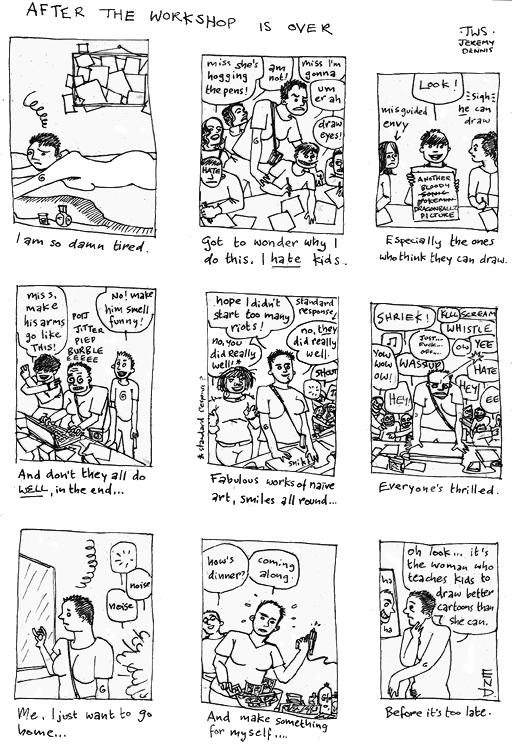 AFTER THE WORKSHOP IS OVER
·JWS·
JEREMY
DENNIS
G
I am so damn tired.
miss she's
hogging
the pens!
am
not!
miss I'm
gonna
um
er ah
draw
eyes!
HATE
G
Got to wonder why I
do this. I hate kids.
Look!
misguided
envy
=Sigh=
he can
draw
ANOTHER
BLOODY
SONIC
POKEMON
DRAGONBALL
PICTURE
Especially the ones
who think they can draw.
miss,
make
his arms
go like
THIS!
POIT
JITTER
PIEP
BURBLE
EEEEE
No! make
him smell
funny!
G
And don't they all do
WELL, in the end...
hope I didn't
start too many
riots!
no, you
did Really
well!*
standard
response,
no, they
did really
well.
SHOUT
* standard response?
G
smile
Fabulous works of naive
art, smiles all round...
SHRIEK!
KILL
SCREAM
WHISTLE
JUST...
FUCK...
OFF...
OW
YEE
YOW
WOW
OW!
WASSUP
HATE
HEY!
HEY!
EE
G
Everyone's thrilled.
noise
noise
G
Me, I just want to go
home...
how's
dinner?
coming
along.
G
And make something
for myself....
ha
ha
oh look... it's
the woman who
teaches kids to
draw better
cartoons than
she can.
G
END
Before it's too late.